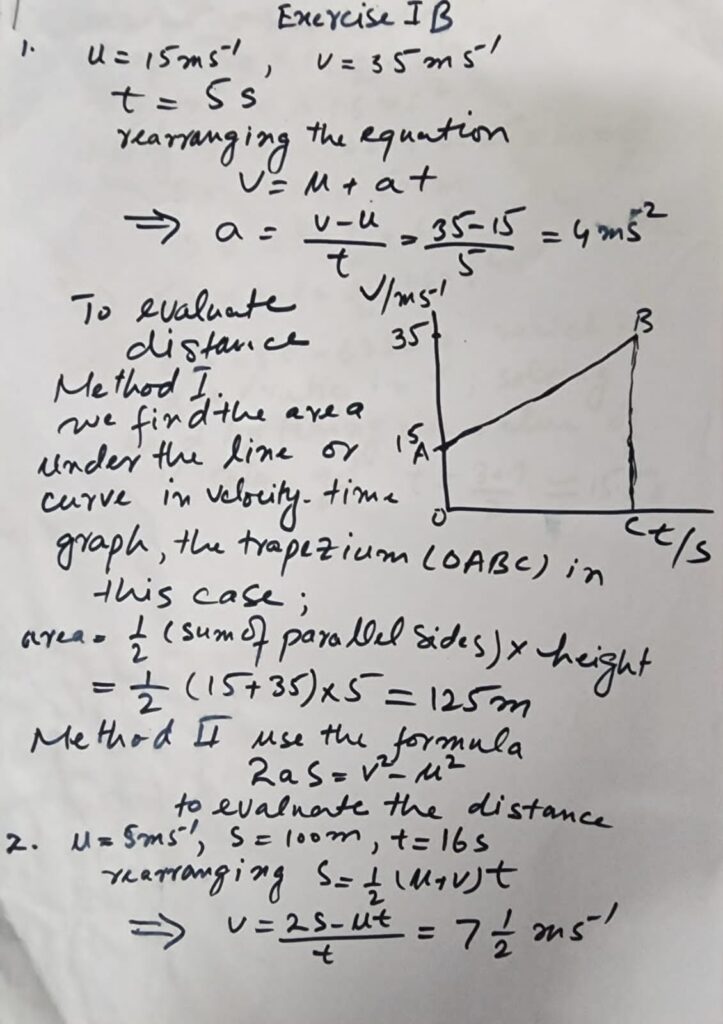 Exercise I B
1. u = 15 m s⁻¹, v = 35 m s⁻¹
t = 5 s
rearranging the equation
v = u + at
⇒ a = (v-u)/t = (35-15)/5 = 4 ms⁻²
To evaluate
distance
Method I.
we find the area
under the line or
curve in velocity-time
graph, the trapezium (OABC) in
this case;
V/ms⁻¹
35
B
15
A
O
C
t/s
area = 1/2 (sum of parallel sides) x height
= 1/2 (15+35) x 5 = 125 m
Method II use the formula
2as = v² - u²
to evaluate the distance
2. u = 5ms⁻¹, S = 100m, t = 16 s
rearranging S = 1/2 (u+v)t
⇒ v = (2s-ut)/t = 7 1/2 ms⁻¹